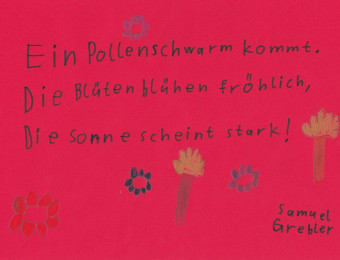 Ein Pollenschwarm kommt.
Die Blüten blühen fröhlich,
Die Sonne scheint stark!
Samuel
Grebler